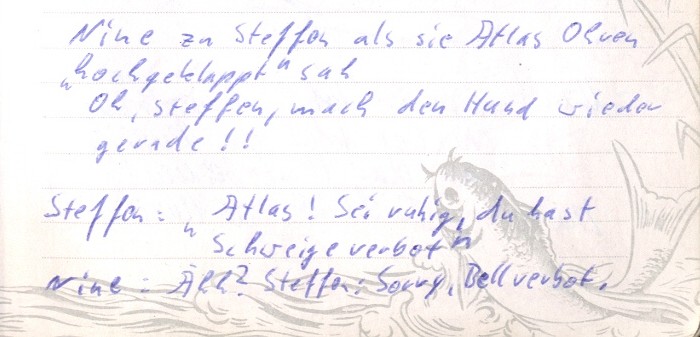 Nine zu Steffen als sie Atlas Ohren
„hochgeklappt" sah
Oh, Steffen, mach den Hund wieder
gerade!!
Steffen: „Atlas! Sei ruhig, du hast
Schweigeverbot"
Nine: Äh? Steffen: Sorry, Bellverbot.